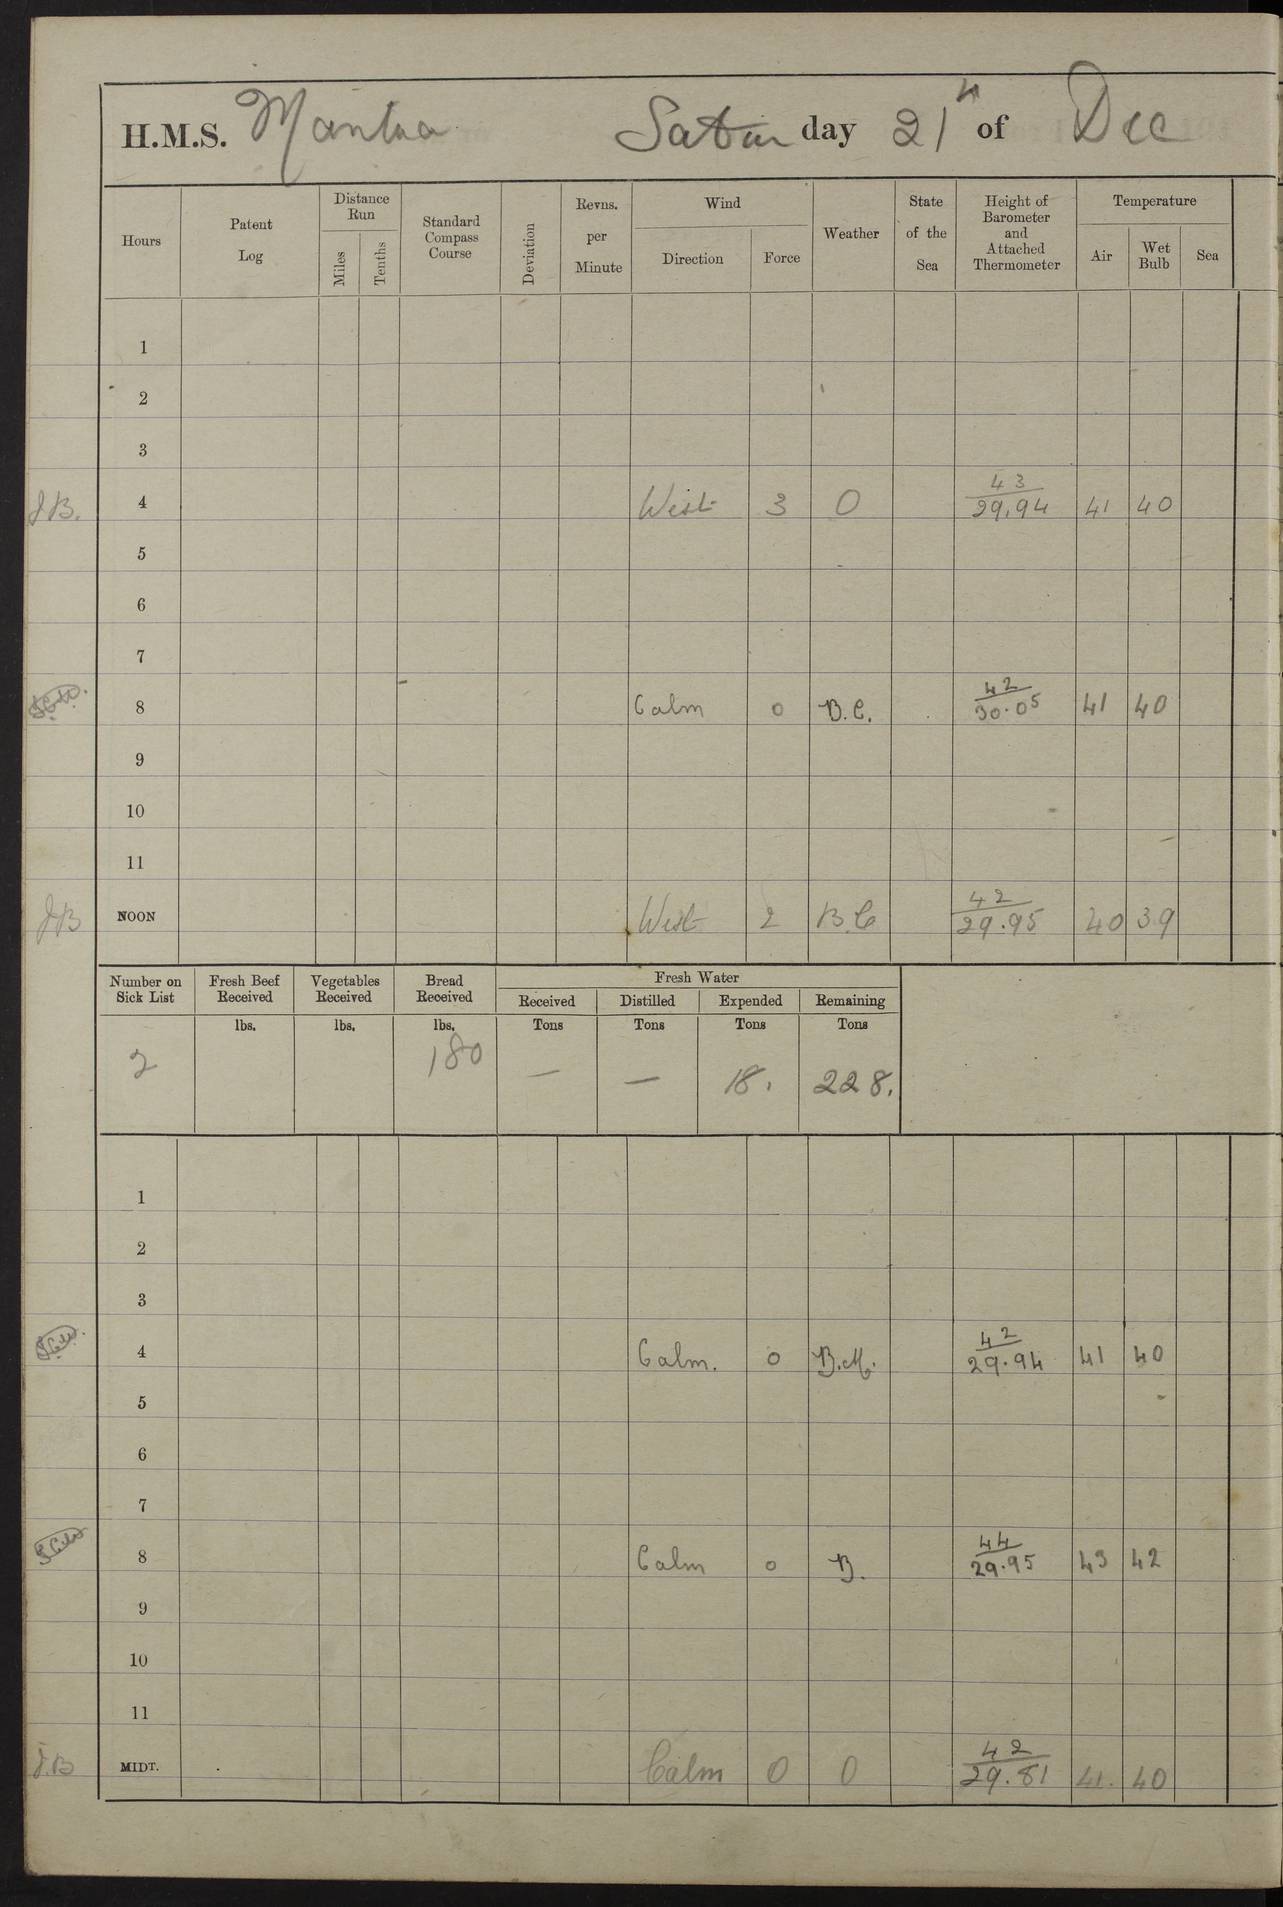 H.M.S. Mantua Satur day 21 of Dec
Hours Patent Log Distance Run Miles Tenths Standard Compass Course Deviation Revns. per Minute Wind Direction Force Weather State of the Sea Height of Barometer and Attached Thermometer Temperature Air Wet Bulb Sea
1
2
3
J.B. 4 West 3 O 43 29.94 41 40
5
6
7
8 Calm 0 B.C. 42 30.05 41 40
9
10
11
JB NOON West 2 B.C 42 29.95 40 39
Number on Sick List Fresh Beef Received Vegetables Received Bread Received Fresh Water Received Distilled Expended Remaining
lbs. lbs. lbs. Tons Tons Tons Tons
2 180 — — 18. 228.
1
2
3
4 Calm. 0 B.M. 42 29.94 41 40
5
6
7
8 Calm 0 B. 44 29.95 43 42
9
10
11
J.B MIDT. Calm 0 O 42 29.81 41. 40